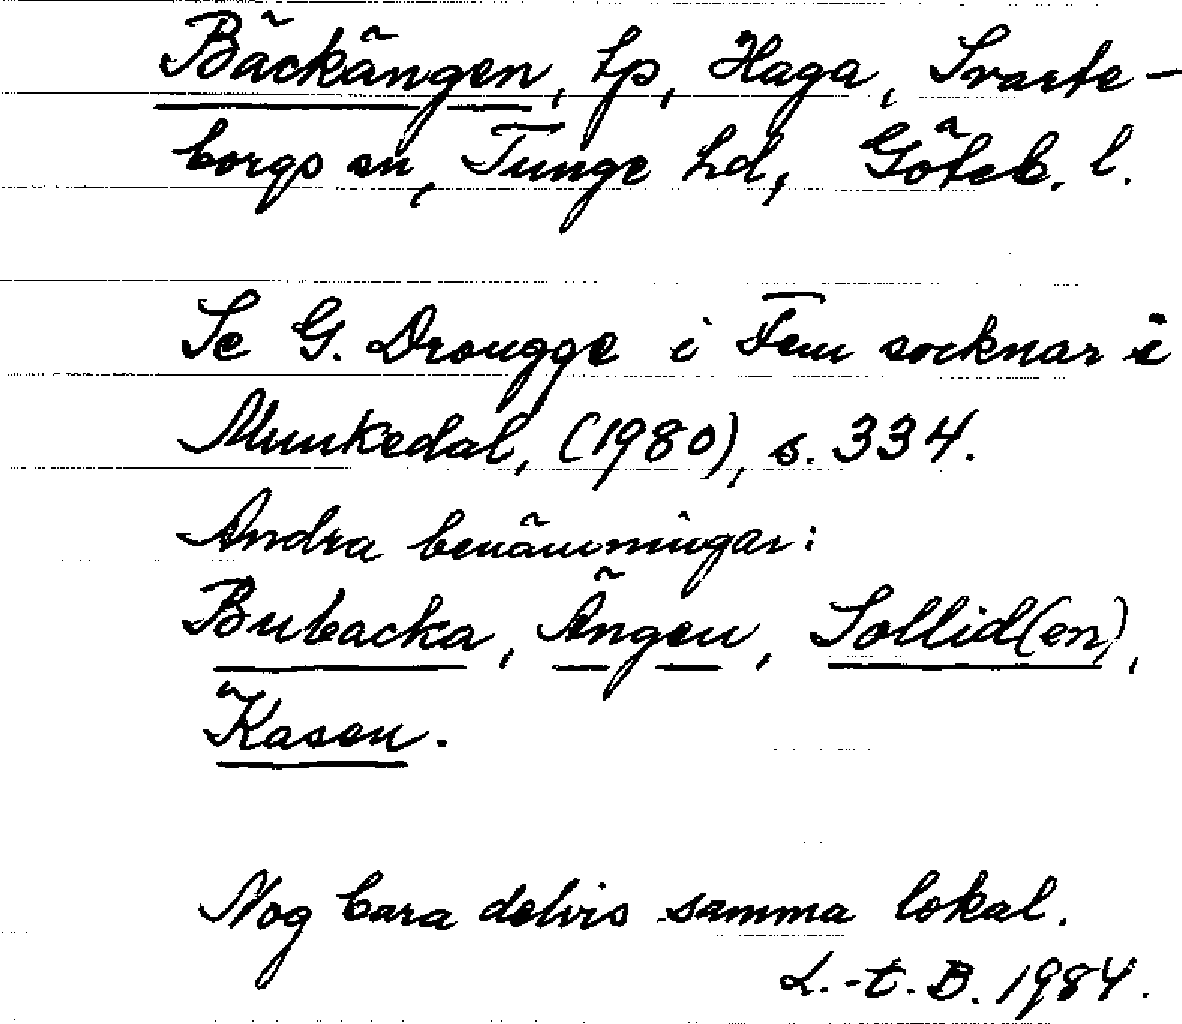 Bäckängen, tp, Haga, Svarte-
borgs sn, Tunge hd, Göteb. l.
Se G. Drougge i Fem socknar i
Munkedal, (1980), s. 334.
Andra benämningar:
Bubacka, Ängen, Sollid(en),
Kasen.
Nog bara delvis samma lokal.
L.-t. B. 1984.